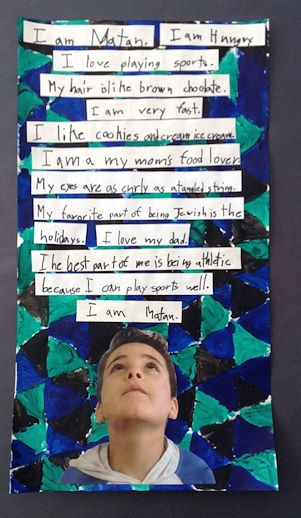 I am Matan. I am Hungry
I love playing sports.
My hair is like brown choclate.
I am very fast.
I like cookies and cream ice cream.
I am a my mom's food lover.
My eyes are as cnrly as a tangled string.
My favorite part of being Jewish is the
holidays. I love my dad.
The best part of me is being athletic
because I can play sports well.
I am Matan.